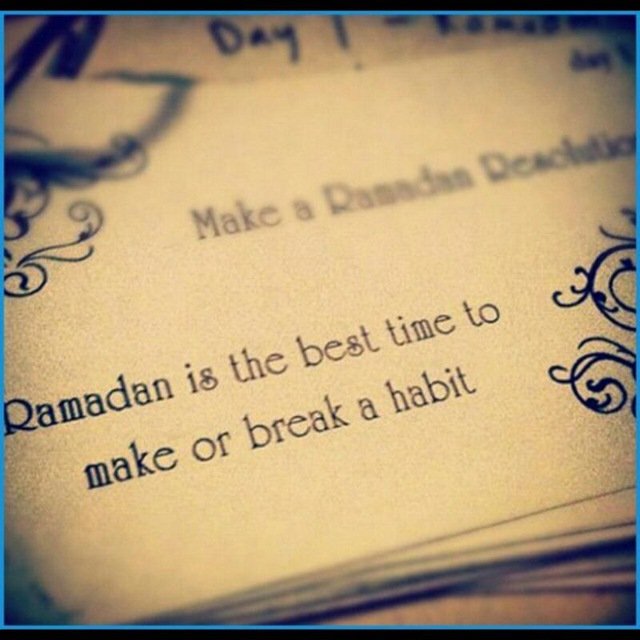 Day 1 - Ramadan
day
Make a Ramadan Resolution
Ramadan is the best time to
make or break a habit